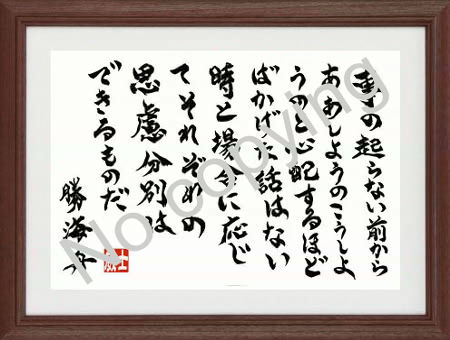 事の起らない前から
ああしようのこうしよ
うのと心配するほど
ばかげた話はない
時と場合に応じ
てそれぞれの
思慮分別は
できるものだ
勝海舟
No copying